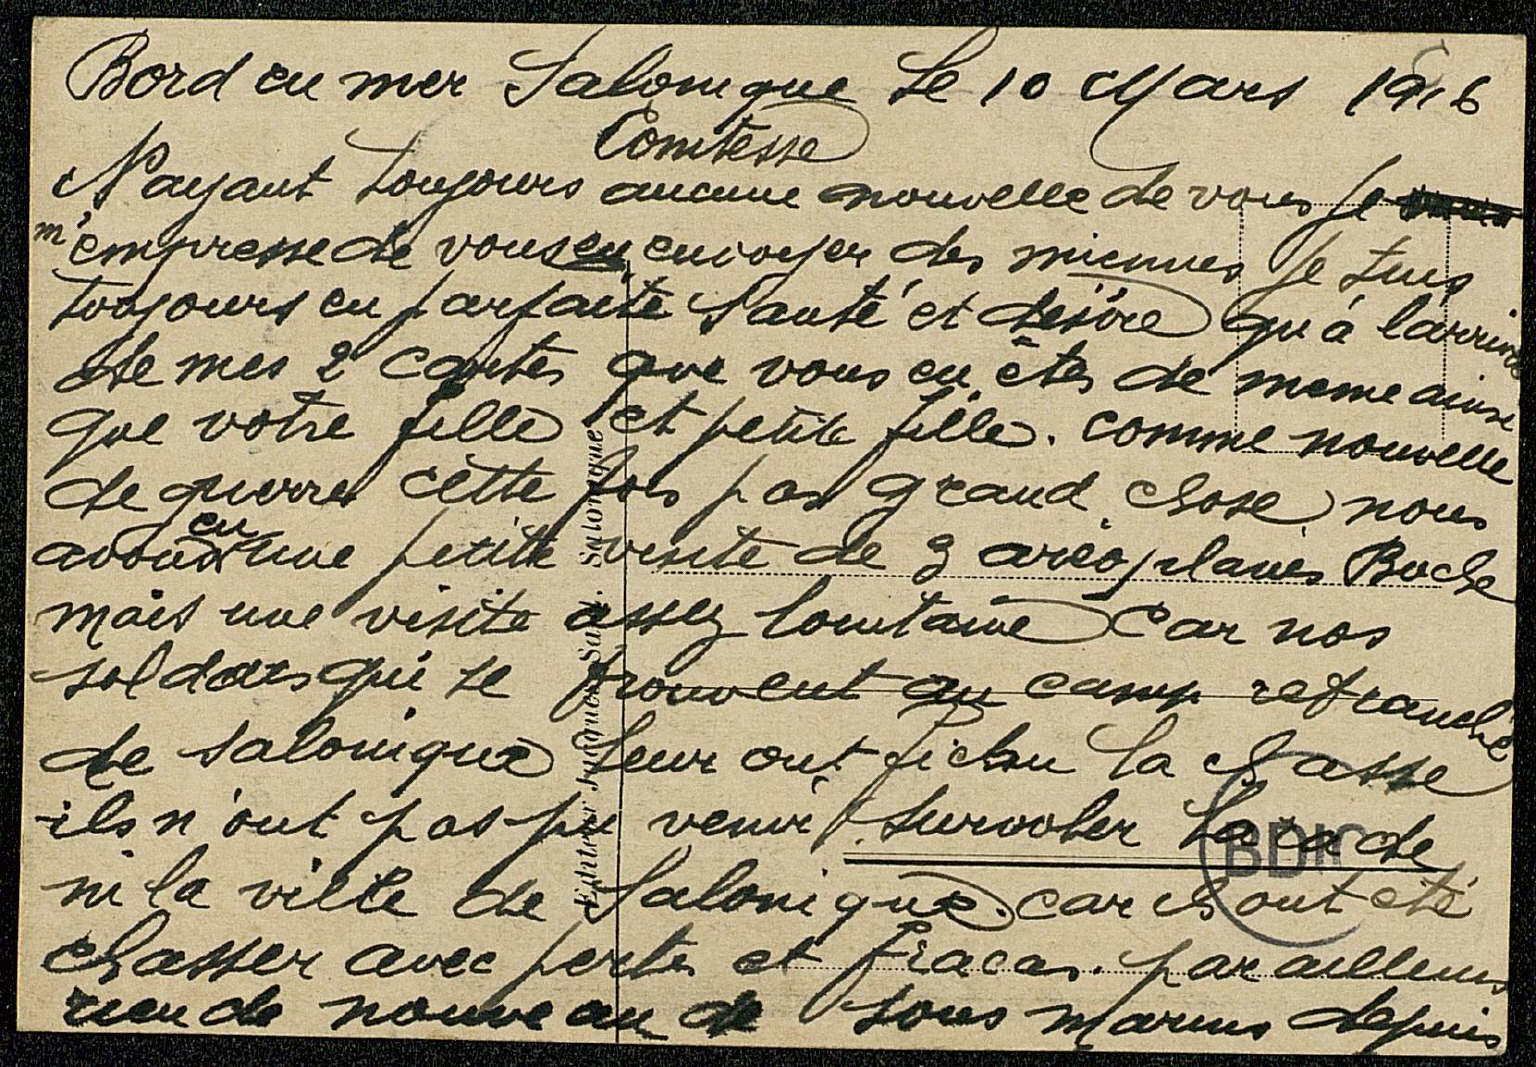 Bord en mer Salonique Le 10 Mars 1916
Comtesse
N'ayant toujours aucune nouvelle de vous je
m'empresse de vous en envoyer des miennes Je suis
toujours en parfaite Santé et désire qu'à l'arrivée
de mes 2 cartes que vous en êtes de meme ainsi
que votre fille et petite fille. comme nouvelle
de guerre cette fois pas grand chose nous
avons eu une petite visite de 3 aréoplanes Boche
mais une visite assez lointaine car nos
soldats qui se trouvent au camp retranché
de Salonique leur ont fichu la chasse
ils n'ont pas pu venir survoler la rade
ni la ville de Salonique. car ils ont été
chasser avec pertes et fracas. par ailleurs
rien de nouveau de sous marins depuis
Editeur Salonique
BDIC